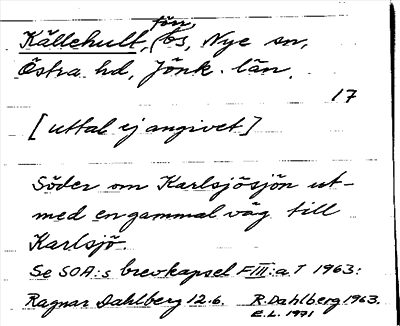 förr
Källehult, bs, Nye sn,
Östra hd, Jönk. län.
17
[uttal ej angivet]
Söder om Karlsjösjön ut-
med en gammal väg till
Karlsjö.
Se SOA:s brevkapsel F III:a.7 1963:
Ragnar Dahlberg 12.6. R. Dahlberg 1963.
E.L. 1971